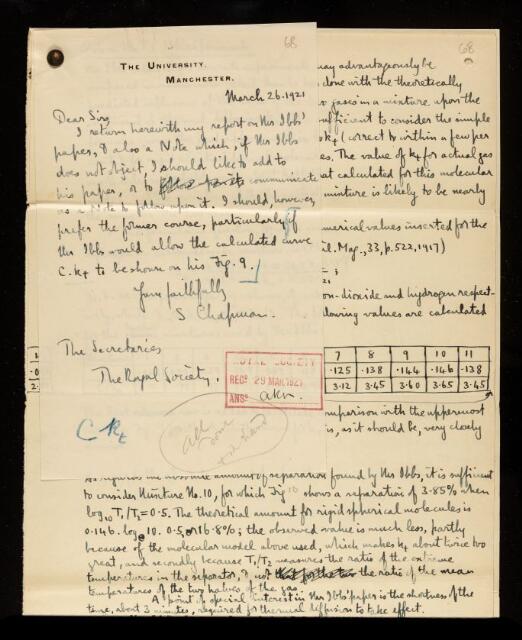 68
THE UNIVERSITY,
MANCHESTER.
March 26. 1921
Dear Sir,
I return herewith my report on Mr Ibbs'
paper, & also a Note which, if Mr Ibbs
does not object, I should like to add to
his paper, or to communicate
as a Note to follow upon it. I should, however,
prefer the former course, particularly if
Mr Ibbs would allow the calculated curve
C.kt to be shown on his Fig. 9.
Yours faithfully
S Chapman.
The Secretaries
The Royal Society.
ROYAL SOCIETY
RECD 29 MAR. 1921
ANSD akn.
C kt
all
68
may advantageously be
done with the theoretically
gases in a mixture, upon the
sufficient to consider the simple
kt (correct to within a few per
es. The value of kt for actual gas
at calculated for this molecular
mixture is likely to be nearly
numerical values inserted for the
il. Mag., 33, p. 522, 1917)
on-dioxide and hydrogen respect-
llowing values are calculated
7 8 9 10 11
.125 .138 .144 .146 .138
3.12 3.45 3.60 3.65 3.45
comparison with the uppermost
is, as it should be, very closely
As regards the absolute amount of separation found by Mr Ibbs, it is sufficient
to consider Mixture No. 10, for which Fig 10 shows a separation of 3.85% when
log10 T1/T2 = 0.5. The theoretical amount for rigid spherical molecules is
0.146. loge 10. 0.5, or 16.8%; the observed value is much less, partly
because of the molecular model above used, which makes kt about twice too
great, and secondly because T1/T2 measures the ratio of the extreme
temperatures in the separator, & not the ratio of the mean
temperatures of the two halves of the gas.
A point of special interest in Mr Ibbs' paper is the shortness of the
time, about 3 minutes, required for thermal diffusion to take effect.